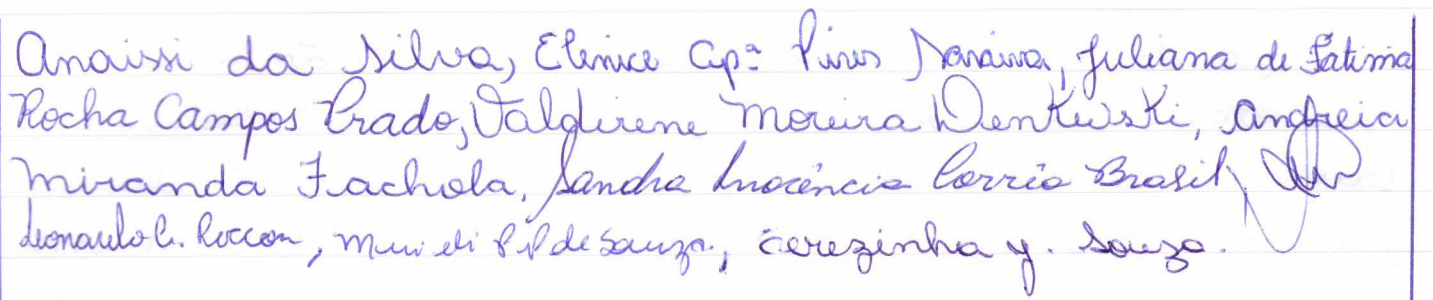 Anaissi da Silva, Elenice Apª Pires Saraiva, Juliana de Fátima
Rocha Campos Prado, Valdirene Moreira Denkewski, Andreia
Miranda Fachola, Sandra Inocência Corrêa Brasil,
Leonardo C. Roccon, de Souza, Cerezinha y. Souza.